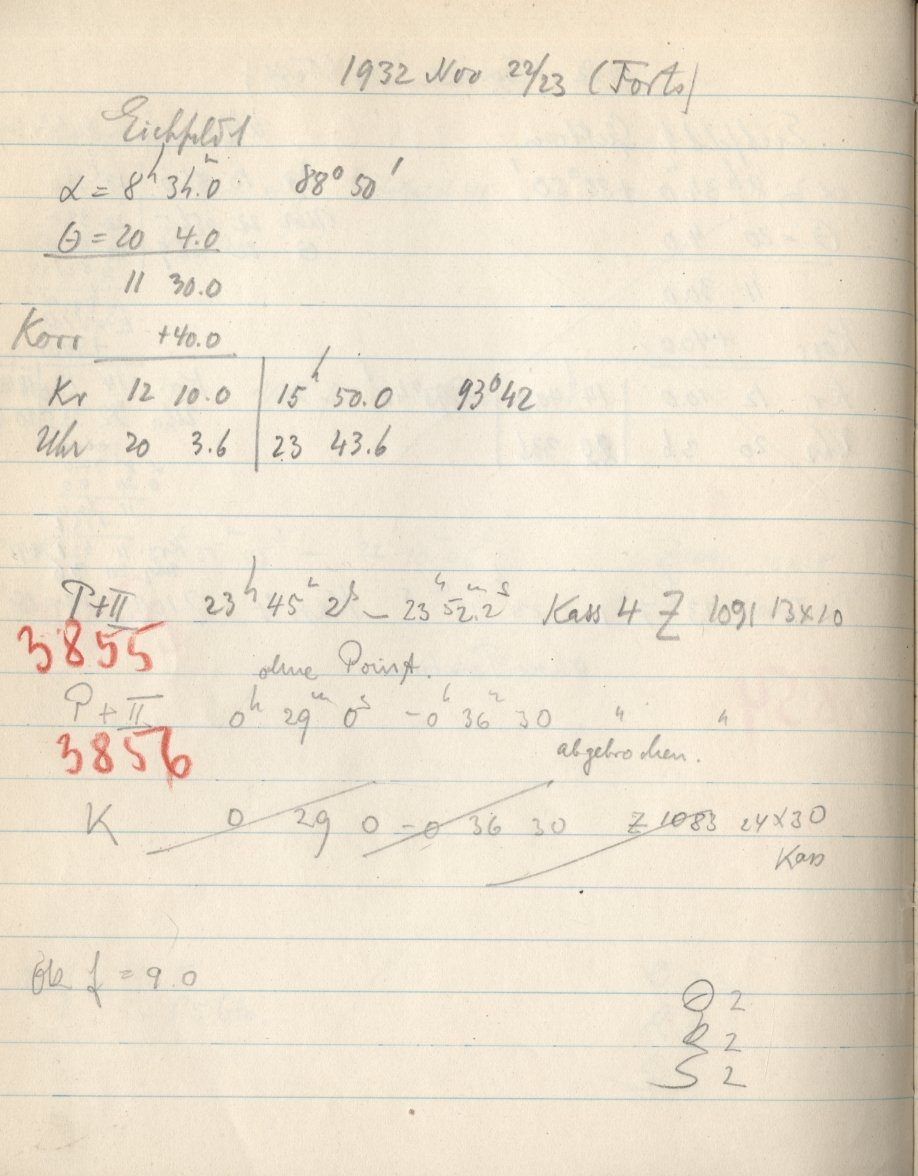 1932 Nov 22/23 (Forts)
Eichfeld 1
α = 8ʰ 34.0ᵐ 88° 50'
Θ = 20 4.0
11 30.0
Korr +40.0
Kr 12 10.0 | 15ʰ 50.0 93° 42
Uhr 20 3.6 | 23 43.6
P+II 23ʰ 45ᵐ 2ˢ – 23ʰ 52ᵐ.2ˢ Kass 4 Z 1091 13×10
3855
ohne Point.
P+II 0ʰ 29ᵐ 0ˢ – 0ʰ 36ᵐ 30 " "
3856
abgebrochen.
K 0 29 0 – 0 36 30 Z 1083 24×30
Kass
f = 9.0
2
2
S 2